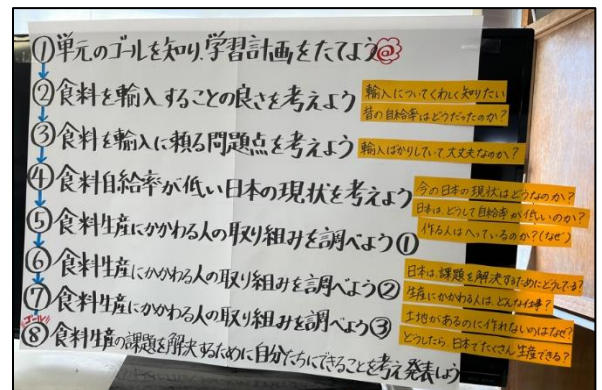 ①単元のゴールを知り、学習計画をたてよう@
②食料を輸入することの良さを考えよう
輸入についてくわしく知りたい
昔の自給率はどうだったのか?
③食料を輸入に頼る問題点を考えよう
輸入ばかりしていて大丈夫なのか?
④食料自給率が低い日本の現状を考えよう
今の日本の現状はどうなのか?
日本は、どうして自給率が低いのか?
作る人はへっているのか?(なぜ)
⑤食料生産にかかわる人の取り組みを調べよう①
⑥食料生産にかかわる人の取り組みを調べよう②
日本は、課題を解決するためにどうしてる?
生産にかかわる人は、どんな仕事?
⑦食料生産にかかわる人の取り組みを調べよう③
土地があるのに作れないのはなぜ?
どうしたら日本でたくさん生産できる?
ゴール
⑧食料生産の課題を解決するために自分たちにできることを考え発表しよう